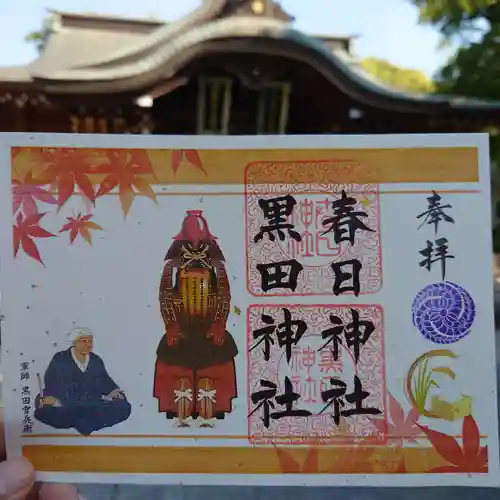 奉拝
春日神社
黒田神社
軍師 黒田官兵衛